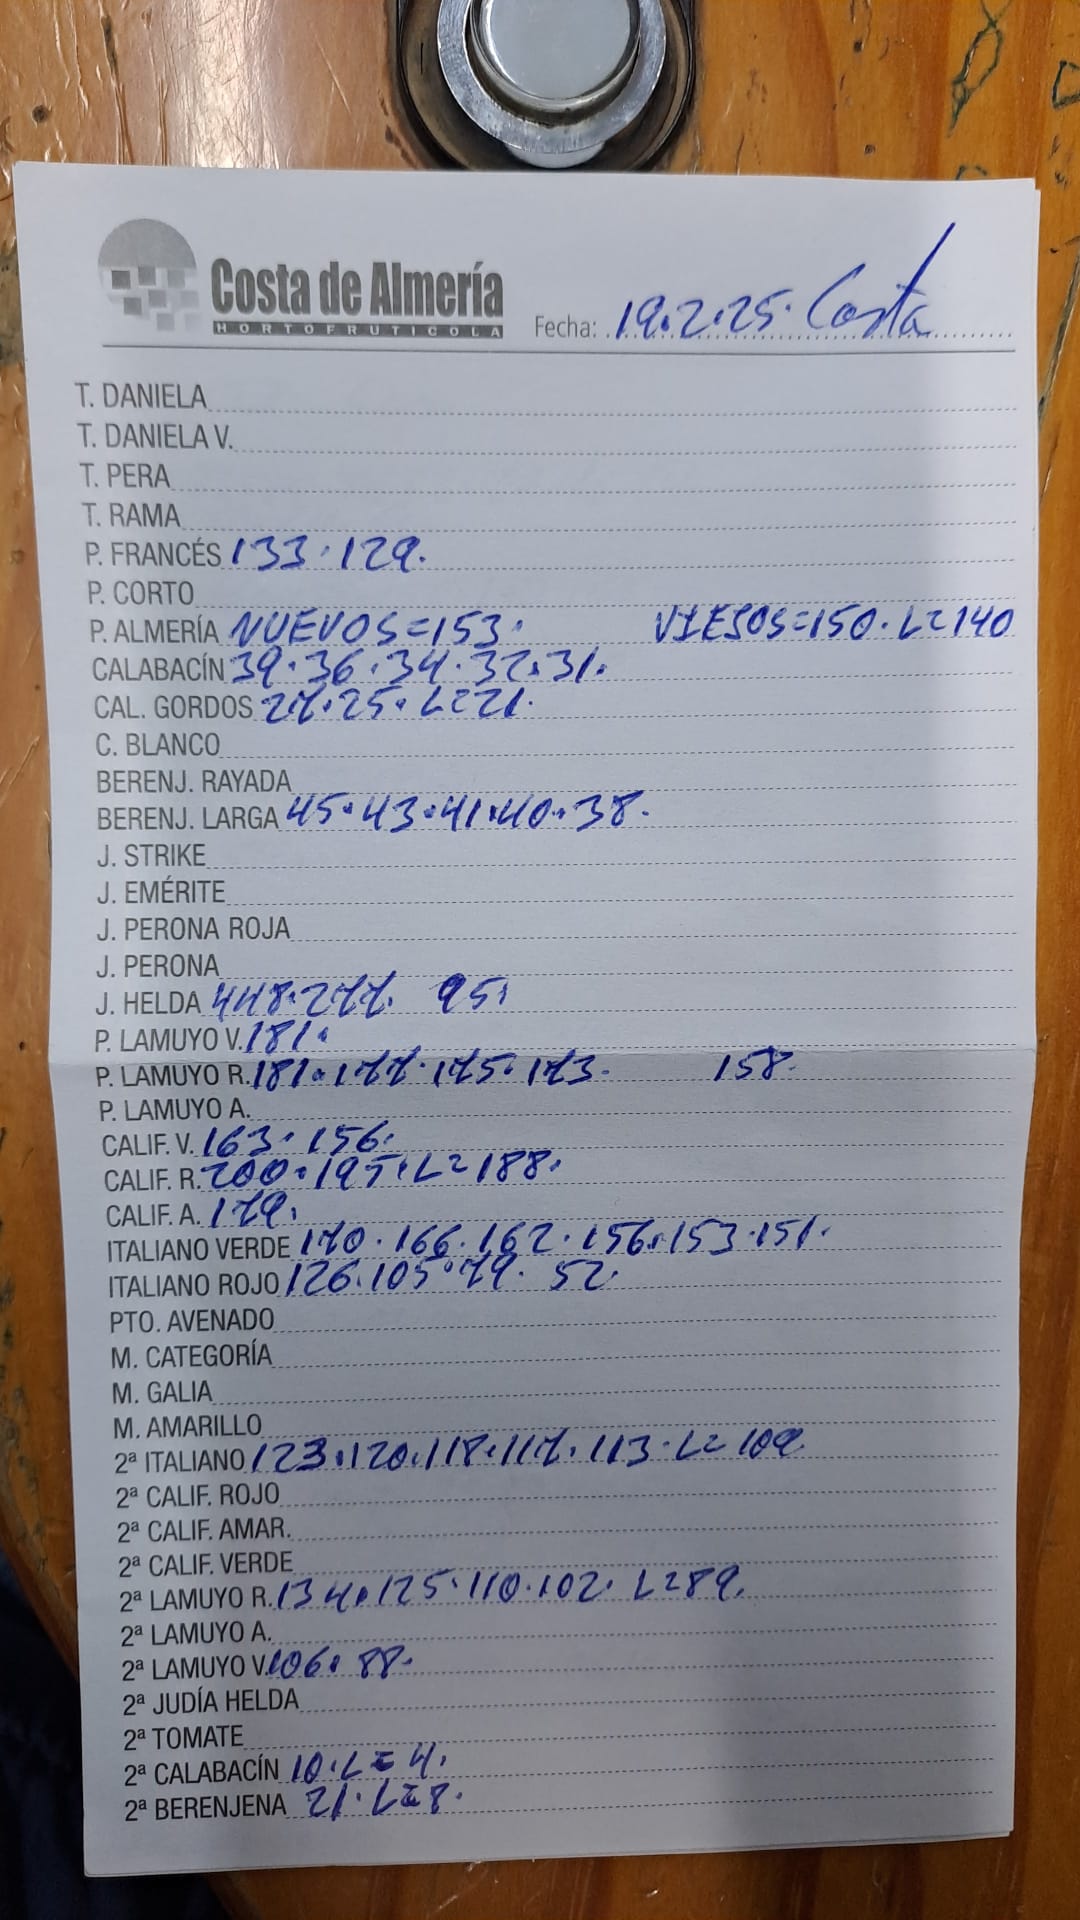 Costa de Almería
HORTOFRUTICOLA
Fecha: 19.2.25. Costa
T. DANIELA
T. DANIELA V.
T. PERA
T. RAMA
P. FRANCÉS 133.129.
P. CORTO
P. ALMERÍA NUEVOS=153. VIEJOS=150. L=140
CALABACÍN 39.36.34.32.31.
CAL. GORDOS 27.25. L=21.
C. BLANCO
BERENJ. RAYADA
BERENJ. LARGA 45.43.41.40.38.
J. STRIKE
J. EMÉRITE
J. PERONA ROJA
J. PERONA
J. HELDA 448.277. 95.
P. LAMUYO V. 181.
P. LAMUYO R. 181.177.175.173. 158.
P. LAMUYO A.
CALIF. V. 163.156.
CALIF. R. 200.195. L=188.
CALIF. A. 179.
ITALIANO VERDE 170.166.162.156.153.151.
ITALIANO ROJO 126.105.79. 52.
PTO. AVENADO
M. CATEGORÍA
M. GALIA
M. AMARILLO
2ª ITALIANO 123.120.118.117.113. L=109.
2ª CALIF. ROJO
2ª CALIF. AMAR.
2ª CALIF. VERDE
2ª LAMUYO R. 134.125.110.102. L=89.
2ª LAMUYO A.
2ª LAMUYO V. 106. 88.
2ª JUDÍA HELDA
2ª TOMATE
2ª CALABACÍN 10. L=4.
2ª BERENJENA 21. L=8.